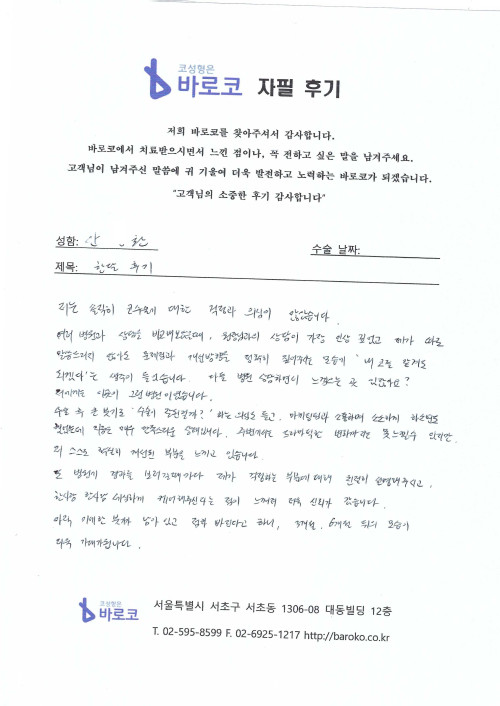 코성형은
바로코 자필 후기
저희 바로코를 찾아주셔서 감사합니다.
바로코에서 치료받으시면서 느낀 점이나, 꼭 전하고 싶은 말을 남겨주세요.
고객님이 남겨주신 말씀에 귀 기울여 더욱 발전하고 노력하는 바로코가 되겠습니다.
"고객님의 소중한 후기 감사합니다"
성함: 안
수술 날짜:
제목: 한달 후기
저는 솔직히 코수술에 대한 걱정과 의심이 많았습니다.
여러 병원과 상담을 비교해보았을때, 원장님과의 상담이 가장 인상 깊었고 제가 따로
말씀드리지 않아도 문제점과 개선방향을 먼저 짚어주는 모습에 '내 코를 맡겨도
되겠다'는 생각이 들었습니다. 다들 병원 상담하면서 느낌오는 곳 있잖아요?
여기가 그런 병원이었습니다.
수술 후 큰 붓기로 '수술이 잘된걸까?' 라는 의심도 들고,
지금은 매우 만족스러운 상태입니다. 주변에서는 드라마틱한 변화까지는 못느낄수 있지만,
저 스스로 확실히 개선된 부분을 느끼고 있습니다.
또 병원에 경과를 보러 갈때마다 제가 걱정하는 부분에 대해 친절히 설명해주시고,
한사람 한사람 세심하게 케어해주신다는 점이 느껴져 더욱 신뢰가 갔습니다.
아직 미세한 붓기가 남아 있고 점차 빠진다고 하니, 3개월, 6개월 뒤의 모습이
더욱 기대가됩니다.
코성형은
바로코
서울특별시 서초구 서초동 1306-08 대동빌딩 12층
T. 02-595-8599 F. 02-6925-1217 http://baroko.co.kr